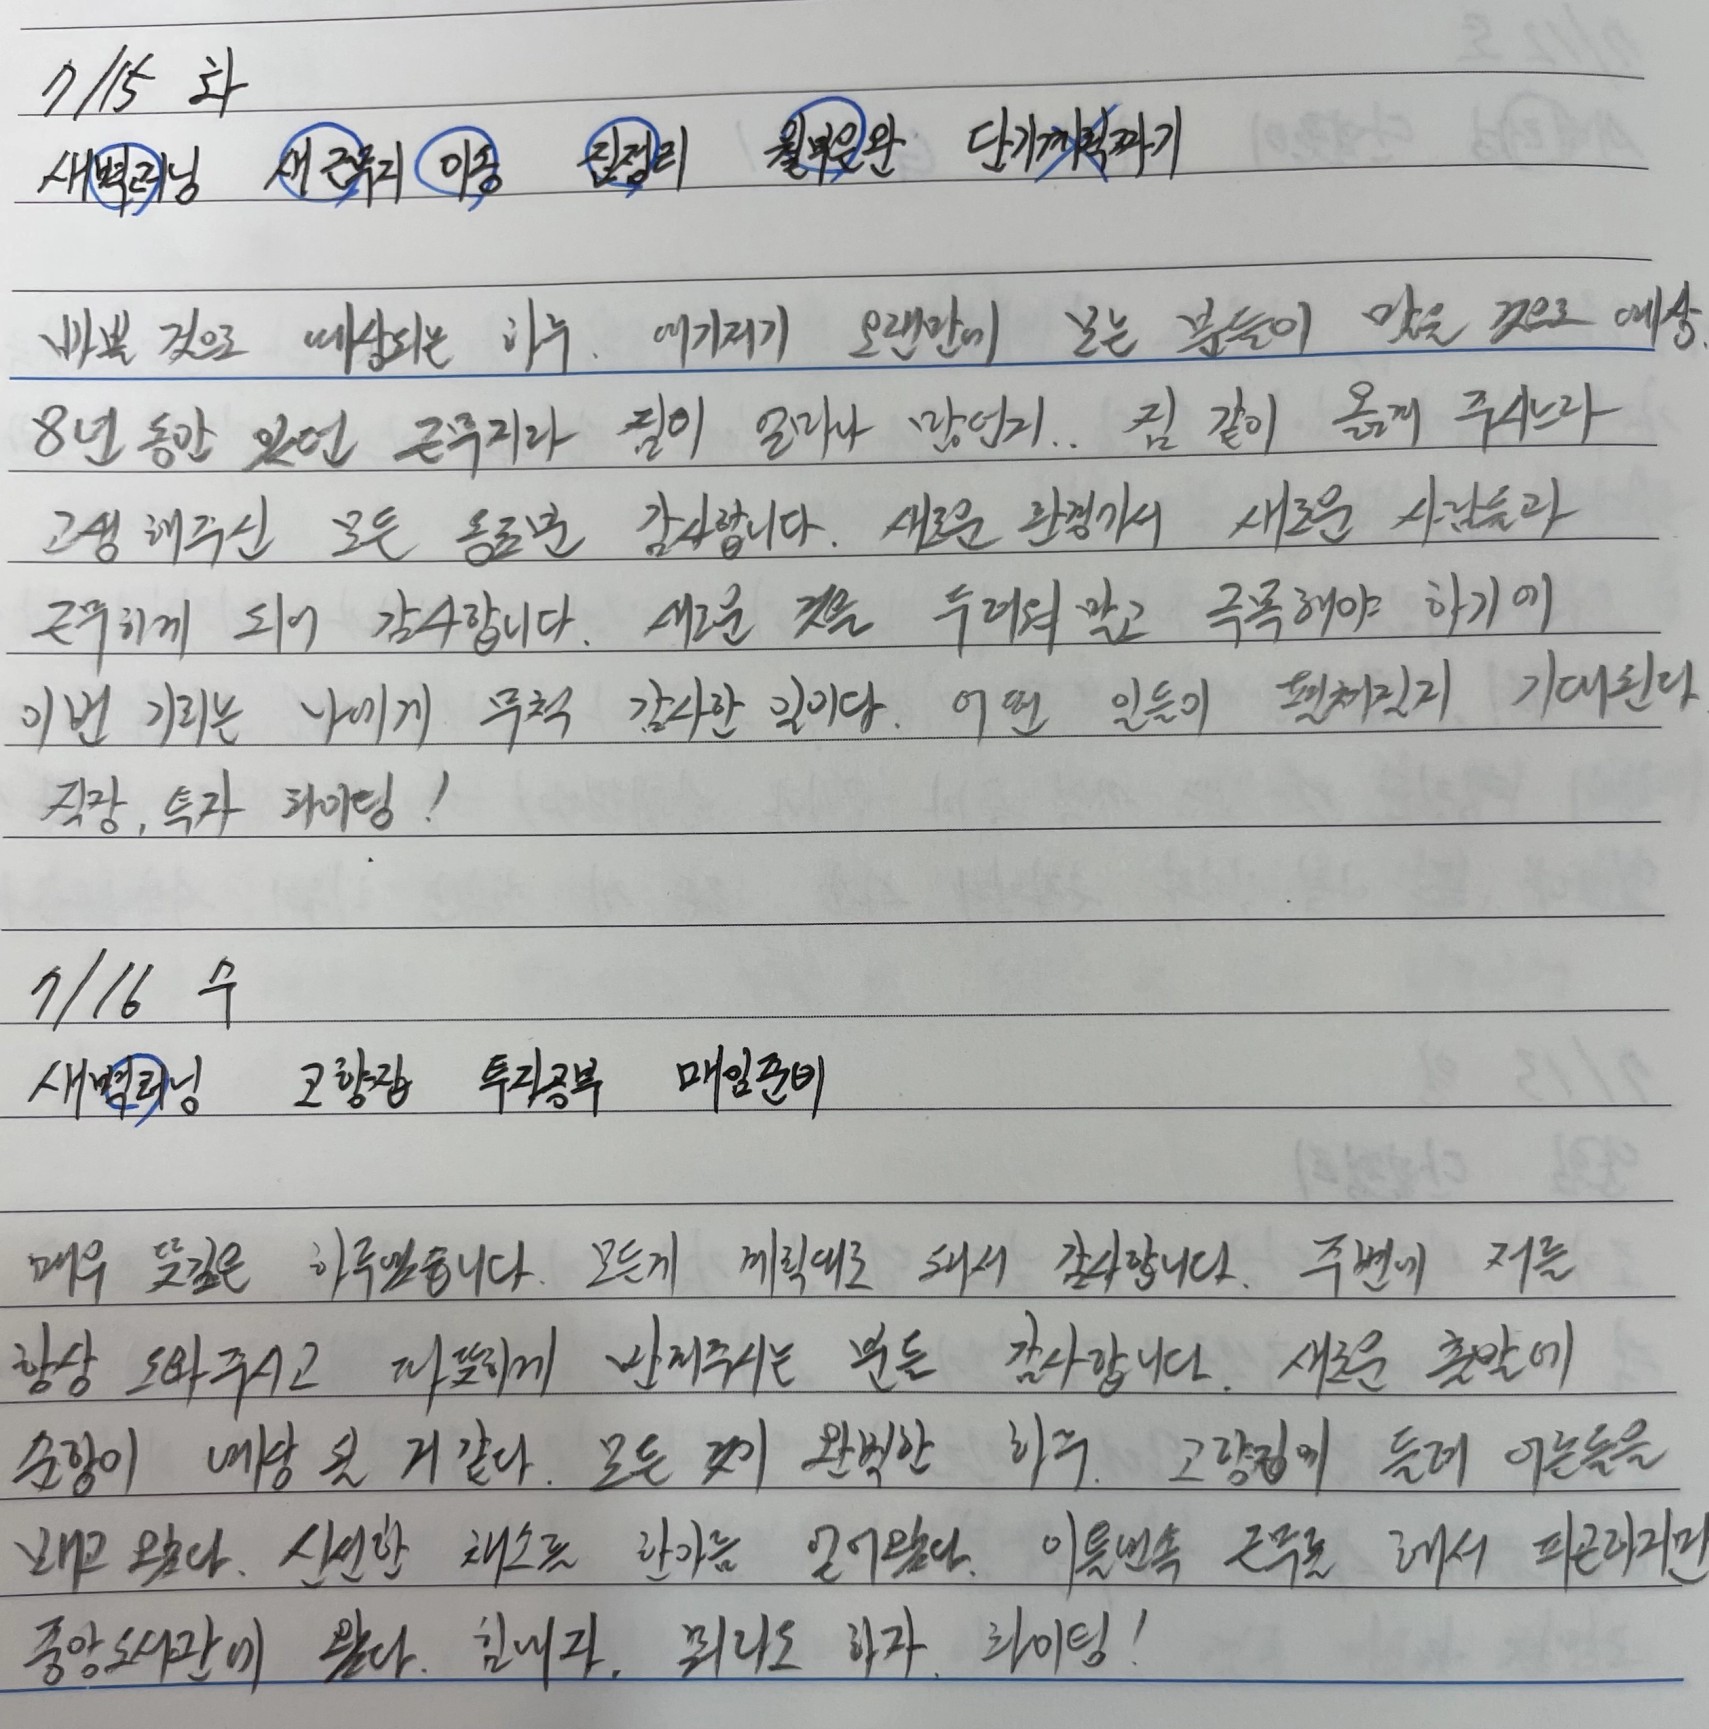 7/15 화
새벽러닝 새근무지 이동 짐정리 월부은완 단기계획짜기
바쁠 것으로 예상되는 하루. 여기저기 오랜만에 보는 분들이 많을 것으로 예상.
8년 동안 있던 근무지라 짐이 얼마나 많던지.. 짐 같이 옮겨 주시느라
고생해주신 모든 동료분 감사합니다. 새로운 환경가서 새로운 사람들과
근무하게 되어 감사합니다. 새로운 것을 두려워 말고 극복해야 하기에
이번 기회는 나에게 무척 감사한 일이다. 어떤 일들이 펼쳐질지 기대된다
직장, 투자 화이팅!
7/16 수
새벽러닝 고향집 투자공부 매임준비
매우 뜻깊은 하루였습니다. 모든게 계획대로 돼서 감사합니다. 주변에 저를
항상 도와주시고 따뜻하게 반겨주시는 분들 감사합니다. 새로운 출발에
순항이 예상 된 거 같다. 모든 것이 완벽한 하루. 고향집에 들려 어른들을
뵈고 왔다. 신선한 채소를 한가득 얻어왔다. 이틀연속 근무를 해서 피곤하지만
중앙도서관에 왔다. 힘내자. 뭐라도 하자. 화이팅!